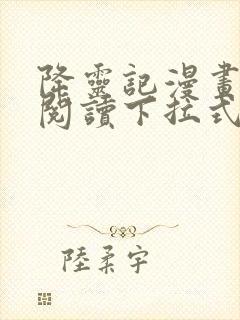 降靈記漫畫
閱讀下拉式
陸柔宇